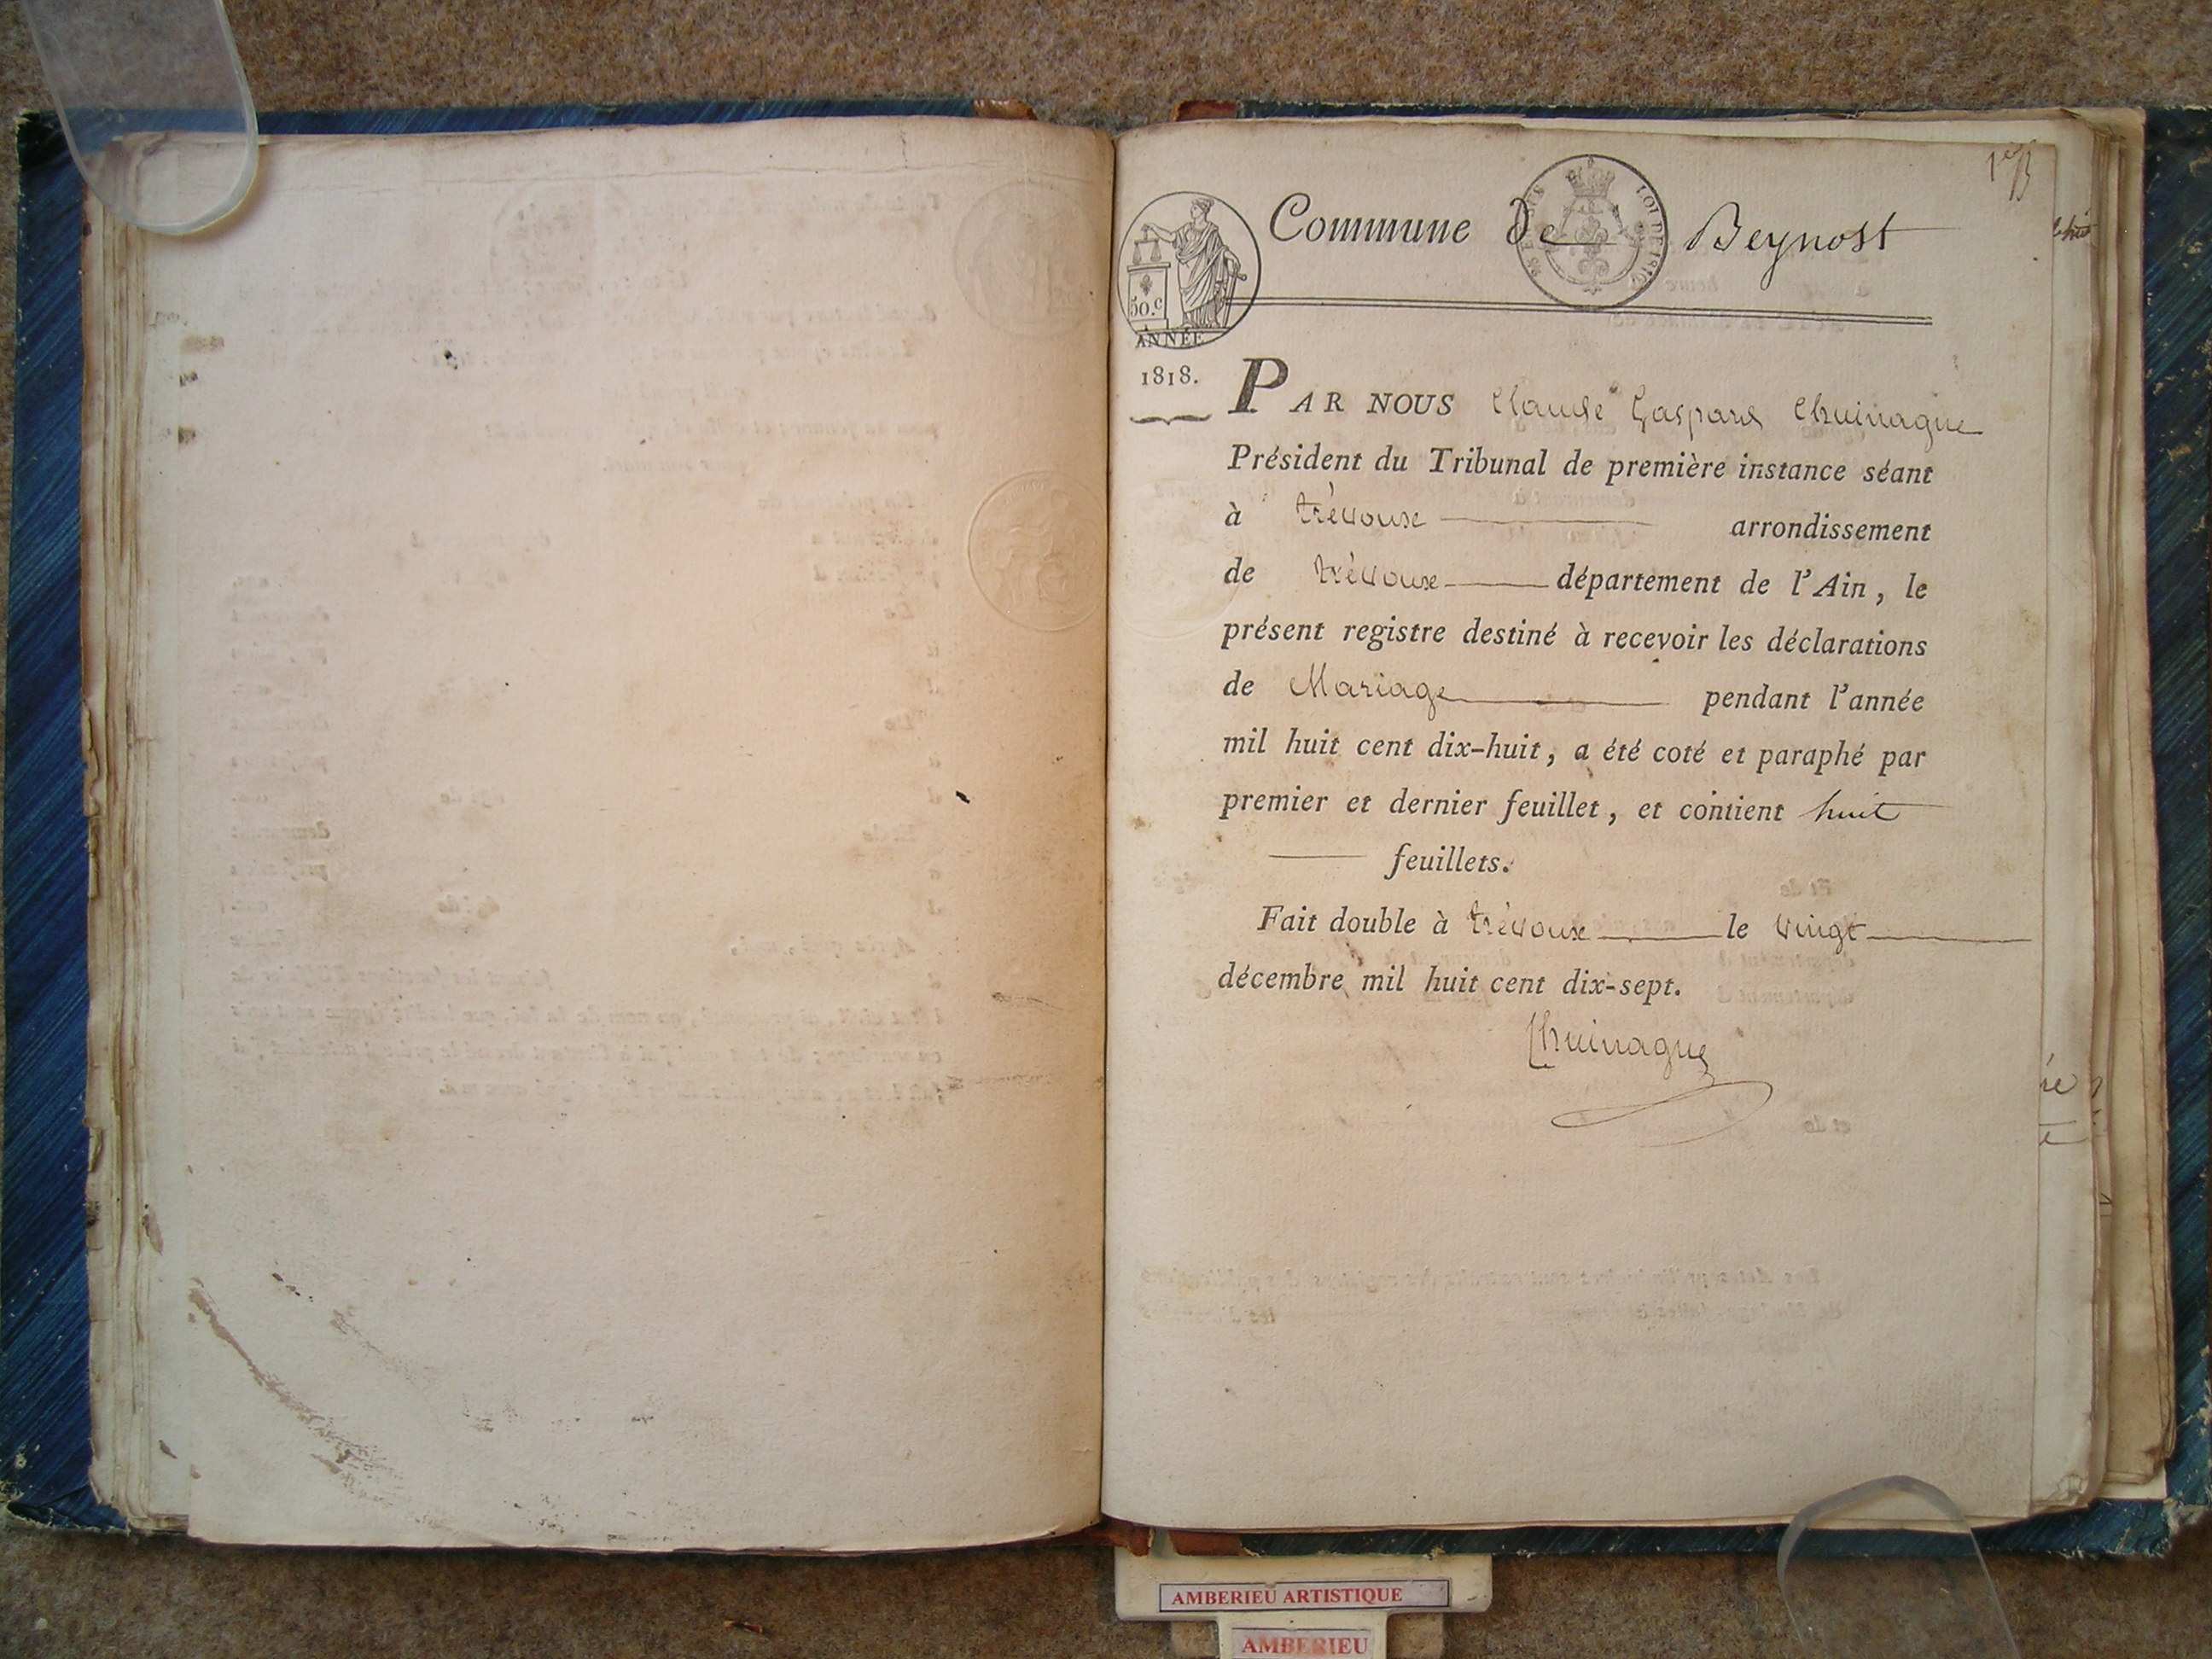 Commune de Beynost
50.c
ANNÉE
1818.
PAR NOUS Claude Gaspard Chuinague
Président du Tribunal de première instance séant
à trévoux arrondissement
de trévoux département de l'Ain, le
présent registre destiné à recevoir les déclarations
de Mariage pendant l'année
mil huit cent dix-huit, a été coté et paraphé par
premier et dernier feuillet, et contient huit
feuillets.
Fait double à trévoux le vingt
décembre mil huit cent dix-sept.
Chuinague
AMBERIEU ARTISTIQUE
AMBERIEU